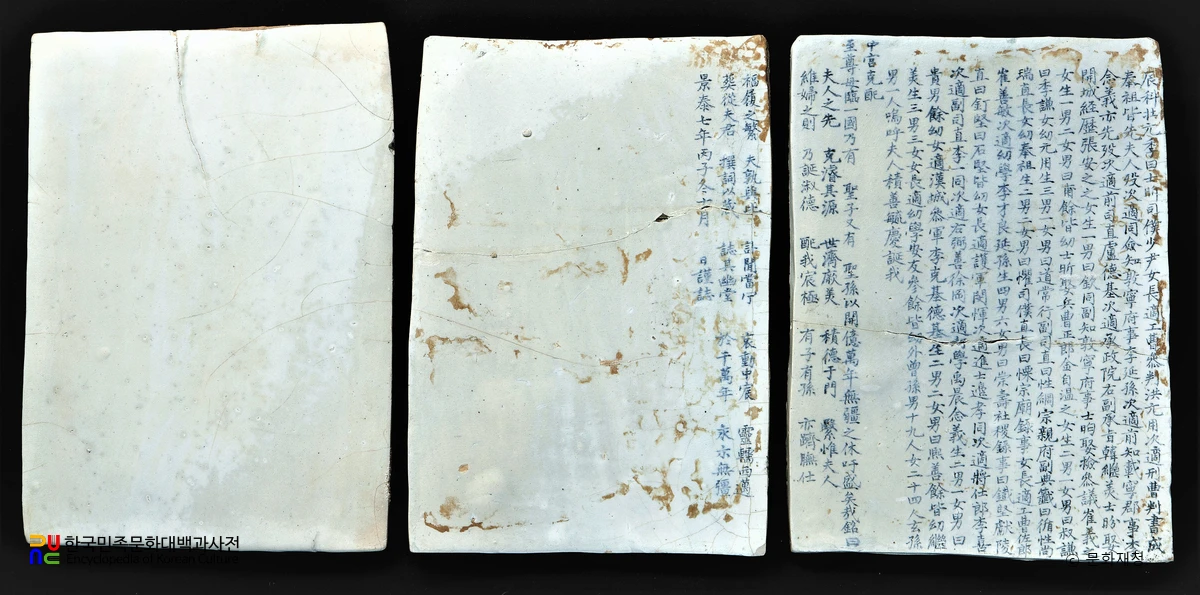 辰科 曰士昕司僕少尹女長適工曹叅判洪元用次適刑曹判書成
奉祖皆先夫人歿次適同僉知敦寧府事李延孫次適前知載寧郡事李
念義亦先歿次適前司直盧德基次適承政院右副承旨韓繼美士昐娶
開城經歷張安之之女生一男曰欽同副知敦寧府事士昀娶檢叅議崔義
女生一男二女男曰甫餘皆幼士昕娶兵曹正郎金自溫之女生二男一女男曰叔謙
曰季謙女幼元用生三男二女男曰道常行副司直曰性綱宗親府副典籤曰循性尚
瑞直長女幼奉祖生二男二女男曰慴司僕直長曰慄宗廟錄事女長適工曹佐郎
崔善敏次適幼學李才良延孫生四男六女男曰崇壽社稷錄事曰鐵堅獻陵
直曰釘堅曰石堅皆幼女長適護軍閔惲次適進士邊孝同次適將仕郎李孟善
次適副司直李一同次適右弼善徐岡次適幼學禹晨念義生二男一女男曰
貴男餘幼女適漢城叅軍李克基德基生二男二女男曰熙善餘皆幼繼
美生三男三女女長適幼學安友參餘皆幼外曾孫男十九人女二十四人玄孫
男一人嗚呼夫人積善毓慶誕我
中宮克配
至尊母臨一國乃有 聖子又有 聖孫以開億萬年無疆之休吁盛矣哉銘曰
夫人之先 克濬其源 世濟厥美 積德于門 繄惟夫人
維婦之則 乃誕淑德 配我宸極 有子有孫 亦躋膴仕
福履之繁 夫孰與比 訃聞當宁 哀動中宸 靈輀西邁
奠從夫君 撰詞以 誌其幽堂 於千萬年 永示無疆
景泰七年丙子冬十月 日謹誌
한국민족문화대백과사전
Encyclopedia of Korean Culture
© 문화재청